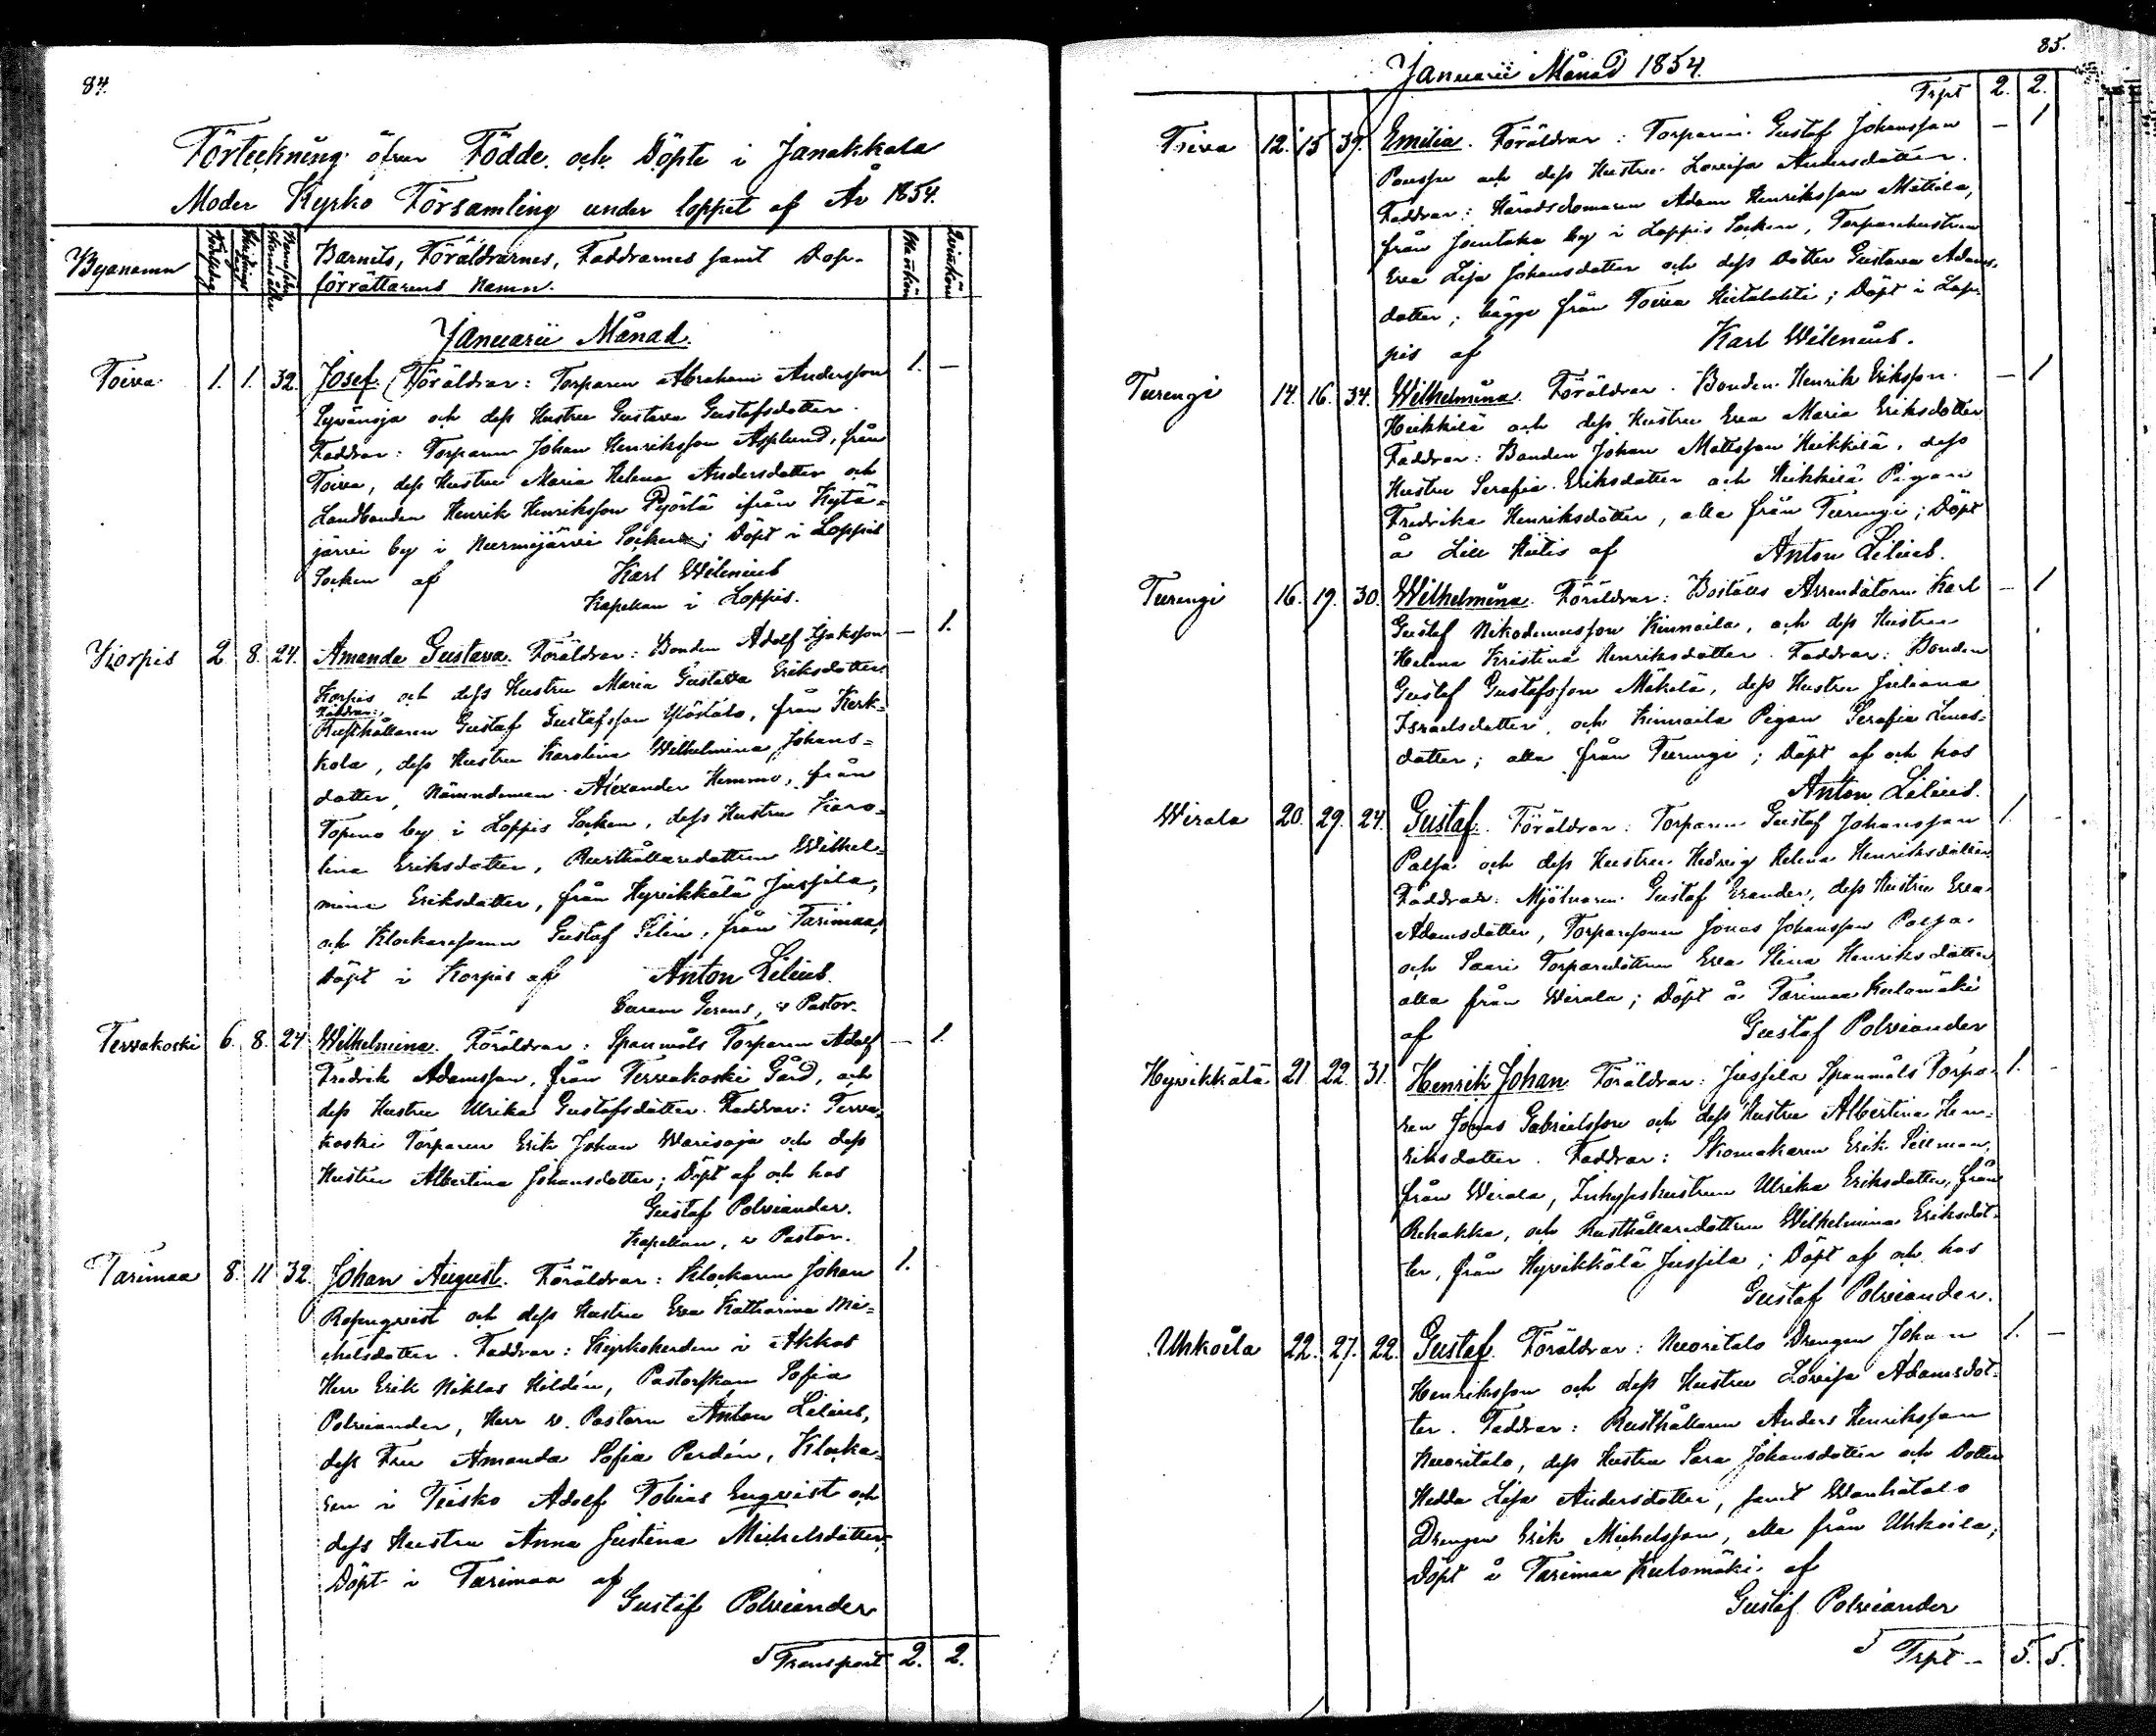 84.
Förteckning öfver Födde och Döpte i Janakkala
Moder Kyrko Församling under loppet af År 1854.
Byanamn
Födelsedag
Barnets, Föräldrarnes, Faddrarnes samt Dop-
förrättarens Namn.
Mankön
Qvinkön
Januarii Månad.
Toiva 1. 1. 32. Josef. Föräldrar: Torparen Abraham Andersson 1. —
Syvänoja och dess Hustru Gustava Gustafsdotter.
Faddrar: Torparen Johan Henriksson Asplund, från
Toiva, dess Hustru Maria Helena Andersdotter och
Landbonden Henrik Henriksson Pyörlä ifrån Kytä=
järvi by i Nurmijärvi Socken; Döpt i Loppis
Socken af Karl Wilenius
Kapellan i Loppis.
Korpis 2. 8. 24. Amanda Gustava. Föräldrar: Bonden Adolf Isaksson — 1.
Korpis och dess Hustru Maria Gustava Eriksdotter.
Faddrar:
Rusthållaren Gustaf Gustafsson Yliöstalo, från Kerk=
kola, dess Hustru Karolina Wilhelmina Johans=
dotter, Nämndeman Alexander Hemmo, från
Topeno by i Loppis Socken, dess Hustru Karo=
lina Eriksdotter, Rusthållaredottren Wilhel=
mina Eriksdotter, från Hyvikkälä Jussila,
och Klockaresonen Gustaf Silén, från Tarimaa;
Döpt i Korpis af Anton Lilius.
Curam Gerens, v Pastor.
Tervakoski 6. 8. 24 Wilhelmina. Föräldrar: Spanmåls Torparen Adolf — 1.
Fredrik Adamsson, från Tervakoski Gård, och
dess Hustru Ulrika Gustafsdotter. Faddrar: Terva=
koski Torparen Erik Johan Warisoja och dess
Hustru Albertina Johansdotter; Döpt af och hos
Gustaf Polviander.
Kapellan, v Pastor.
Tarimaa 8. 11 32. Johan August. Föräldrar: Klockaren Johan 1.
Rosenqvist och dess Hustru Eva Katharina Mi=
chelsdotter. Faddrar: Kyrkoherden i Akkas
Herr Erik Niklas Hildén, Pastorskan Sofia
Polviander, Herr v. Pastorn Anton Lilius,
dess Fru Amanda Sofia Pardén, Klocka=
ren i Teisko Adolf Tobias Enqvist och
dess Hustru Anna Justina Michelsdotter;
Döpt i Tarimaa af
Gustaf Polviander
Transport 2. 2.
85.
Januarii Månad 1854.
Trpt 2. 2.
Toiva 12. 15 39. Emilia. Föräldrar: Torparen Gustaf Johansson — 1
Poussu och dess Hustru Lovisa Andersdotter.
Faddrar: Häradsdomaren Adam Henriksson Mattila,
från Joentaka by i Loppis Socken, Torparehustrun
Eva Lisa Johansdotter och dess Dotter Gustava Adams=
dotter; bägge från Toiva Hietalahti; Döpt i Lop=
pis af Karl Wilenius.
Turengi 14. 16. 34. Wilhelmina. Föräldrar. Bonden Henrik Eriksson — 1
Heikkilä och dess Hustru Eva Maria Eriksdotter
Faddrar: Bonden Johan Mattsson Heikkilä, dess
Hustru Serafia Eriksdotter och Heikkilä Pigan
Fredrika Henriksdotter, alla från Turengi; Döpt
å Lill Hietis af Anton Lilius.
Turengi 16. 19. 30. Wilhelmina. Föräldrar: Boställs Arrendatorn Karl — 1
Gustaf Nikodemusson Kinnaila, och dess Hustru
Helena Kristina Henriksdotter. Faddrar: Bonden
Gustaf Gustafsson Mäkelä, dess Hustru Juliana
Israelsdotter, och Kinnaila Pigan Serafia Linas=
dotter; alla från Turengi; Döpt af och hos
Anton Lilius.
Wirala 20. 29. 24. Gustaf. Föräldrar: Torparen Gustaf Johansson 1.
Palja och dess Hustru Hedvig Helena Henriksdotter.
Faddrar: Mjölnaren Gustaf Erander, dess Hustru Eva
Adamsdotter, Torparesonen Jonas Johansson Palja
och Saari Torparedottren Eva Stina Henriksdotter
alla från Wirala; Döpt å Tarimaa Kulomäki
af Gustaf Polviander
Hyvikkälä 21. 22. 31. Henrik Johan Föräldrar: Jussila Spanmåls Torpa= 1.
ren Jonas Gabrielsson och dess Hustru Albertina Hen=
riksdotter. Faddrar: Skomakaren Erik Sillman,
från Wirala, Inhyseshustrun Ulrika Eriksdotter, från
Rehakka, och Rusthållaredottren Wilhelmina Eriksdot=
ter, från Hyvikkälä Jussila; Döpt af och hos
Gustaf Polviander.
Uhkoila 22. 27. 22. Gustaf. Föräldrar: Nuoritalo Drengen Johan 1. —
Henriksson och dess Hustru Lovisa Adamsdot=
ter. Faddrar: Rusthållaren Anders Henriksson
Nuoritalo, dess Hustru Sara Johansdotter och Dotter
Hedda Lisa Andersdotter, samt Wanhatalo
Drengen Erik Michelsson, alla från Uhkoila;
Döpt å Tarimaa Kulomäki af
Gustaf Polviander
Trpt 5. 5.